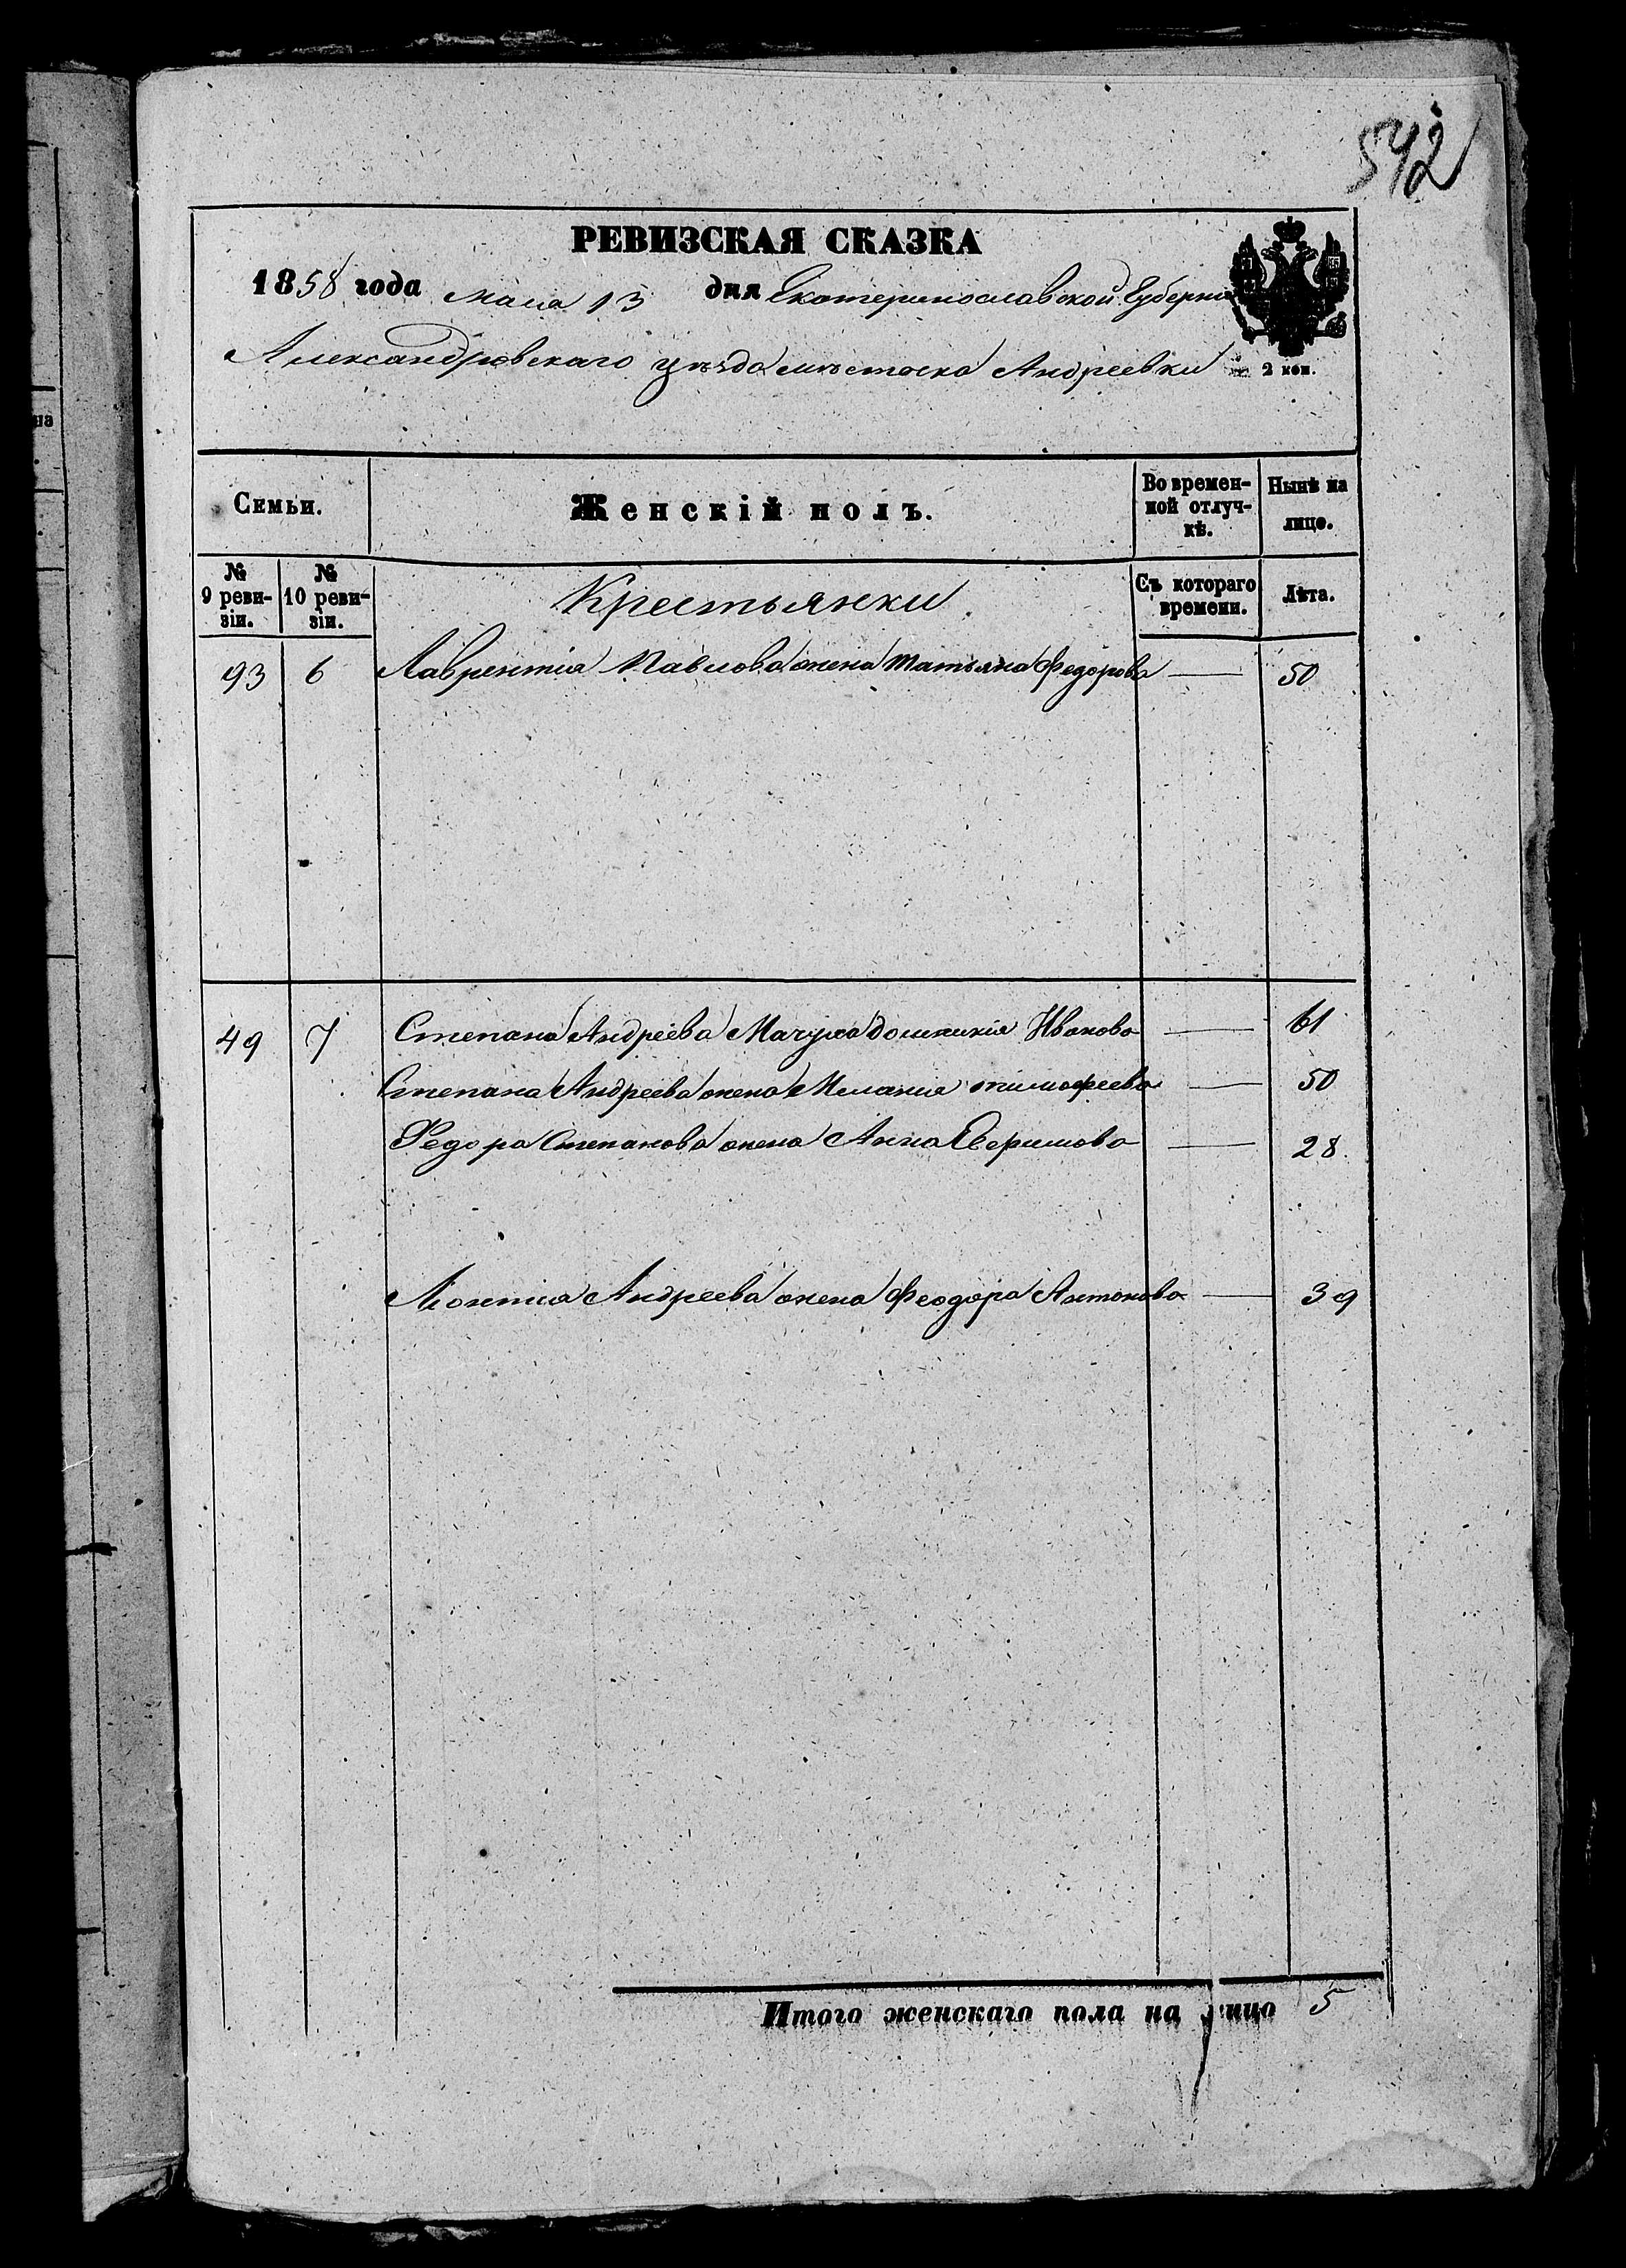 542
РЕВИЗСКАЯ СКАЗКА
1858 года Маия 13 дня Екатеринославской Губерніи
Александровскаго уѣзда мѣстечка Андреевки 2 коп.
Семьи. Женскій полъ. Во времен-ной отлуч-кѣ. Нынѣ на лицо.
№ 9 реви-зіи. № 10 реви-зіи. Крестьянки Съ котораго времени. Лѣта.
93 6 Лаврентія Павлова жена Татьяна Федорова — 50
49 7 Степана Андреева Мачуха Домникія Иванова — 61
Степана Андреева жена Мелания тимофеева — 50
Федора Степанова жена Анна Ефимова — 28
Леонтия Андреева жена Феодора Антонова — 39
Итого женскаго пола на лицо 5
на